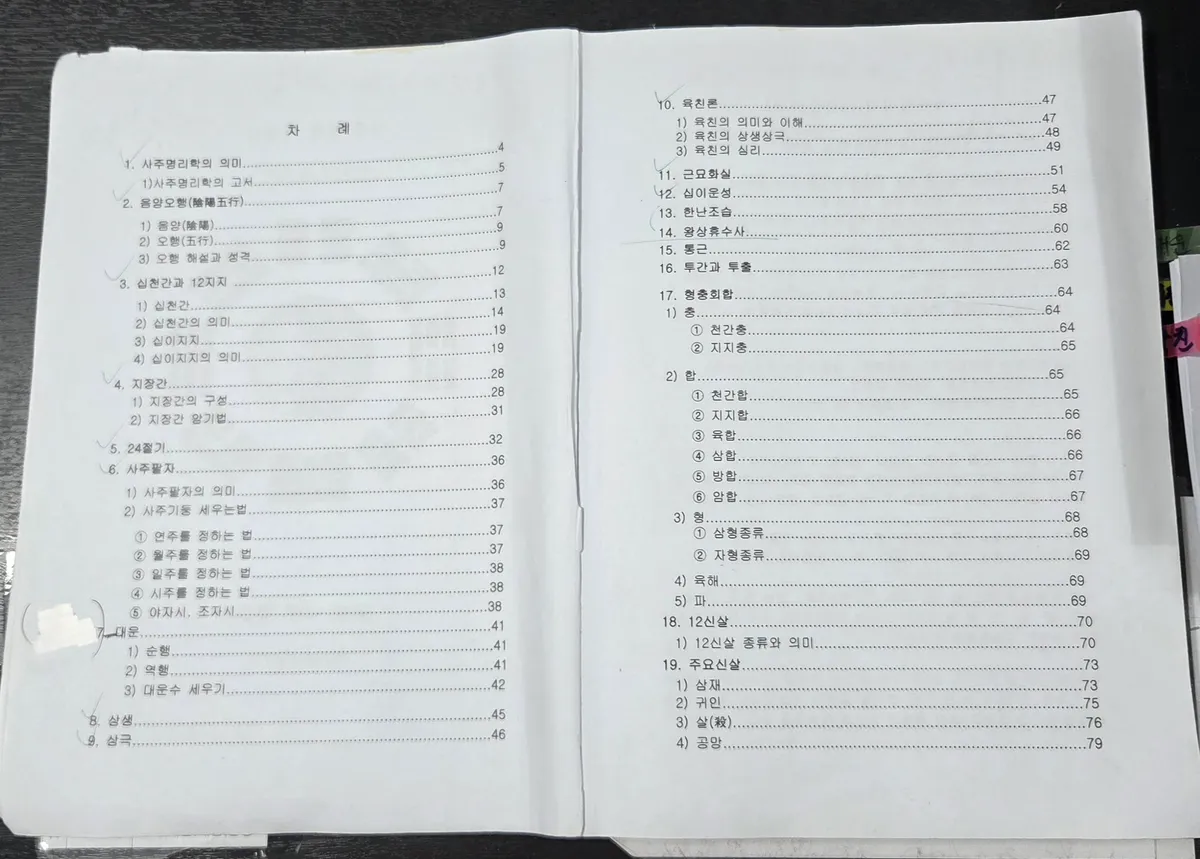 차 례
1. 사주명리학의 의미 4
1)사주명리학의 고서 5
2. 음양오행(陰陽五行) 7
1) 음양(陰陽) 7
2) 오행(五行) 9
3) 오행 해설과 성격 9
3. 십천간과 12지지 12
1) 십천간 13
2) 십천간의 의미 14
3) 십이지지 19
4) 십이지지의 의미 19
4. 지장간 28
1) 지장간의 구성 28
2) 지장간 암기법 31
5. 24절기 32
6. 사주팔자 36
1) 사주팔자의 의미 36
2) 사주기둥 세우는법 37
① 연주를 정하는 법 37
② 월주를 정하는 법 37
③ 일주를 정하는 법 38
④ 시주를 정하는 법 38
⑤ 야자시, 조자시 38
7. 대운 41
1) 순행 41
2) 역행 41
3) 대운수 세우기 42
8. 상생 45
9. 상극 46
10. 육친론 47
1) 육친의 의미와 이해 47
2) 육친의 상생상극 48
3) 육친의 심리 49
11. 근묘화실 51
12. 십이운성 54
13. 한난조습 58
14. 왕상휴수사 60
15. 통근 62
16. 투간과 투출 63
17. 형충회합 64
1) 충 64
① 천간충 64
② 지지충 65
2) 합 65
① 천간합 65
② 지지합 66
③ 육합 66
④ 삼합 66
⑤ 방합 67
⑥ 암합 67
3) 형 68
① 삼형종류 68
② 자형종류 69
4) 육해 69
5) 파 69
18. 12신살 70
1) 12신살 종류와 의미 70
19. 주요신살 73
1) 삼재 73
2) 귀인 75
3) 살(殺) 76
4) 공망 79